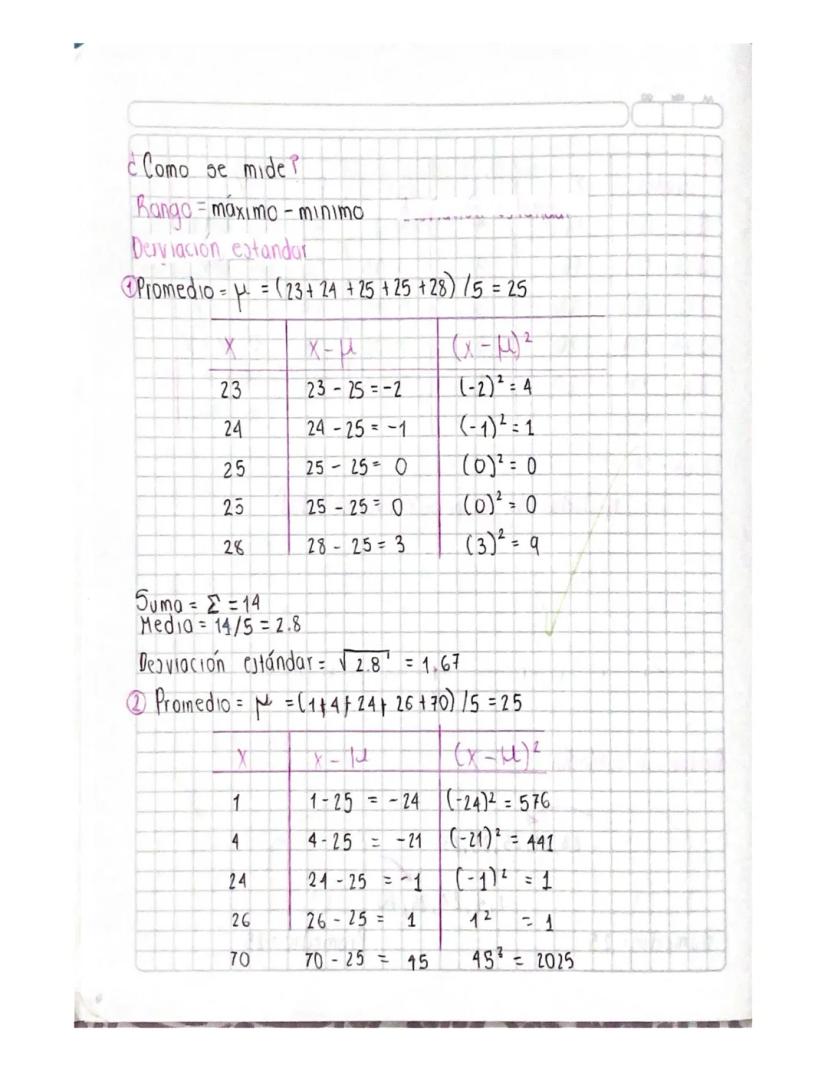 ¿Como se mide?
Rango = máximo - minimo
Desviación estandar
① Promedio = μ = (23 + 24 + 25 + 25 + 28) / 5 = 25
x x - μ (x - μ)²
23 23 - 25 = -2 (-2)² = 4
24 24 - 25 = -1 (-1)² = 1
25 25 - 25 = 0 (0)² = 0
25 25 - 25 = 0 (0)² = 0
28 28 - 25 = 3 (3)² = 9
Suma = Σ = 14
Media = 14/5 = 2.8
Desviación estándar = √2.8 = 1.67
② Promedio = μ = (1 + 4 + 24 + 26 + 70) / 5 = 25
x x - μ (x - μ)²
1 1 - 25 = -24 (-24)² = 576
4 4 - 25 = -21 (-21)² = 441
24 24 - 25 = -1 (-1)² = 1
26 26 - 25 = 1 1² = 1
70 70 - 25 = 45 45² = 2025